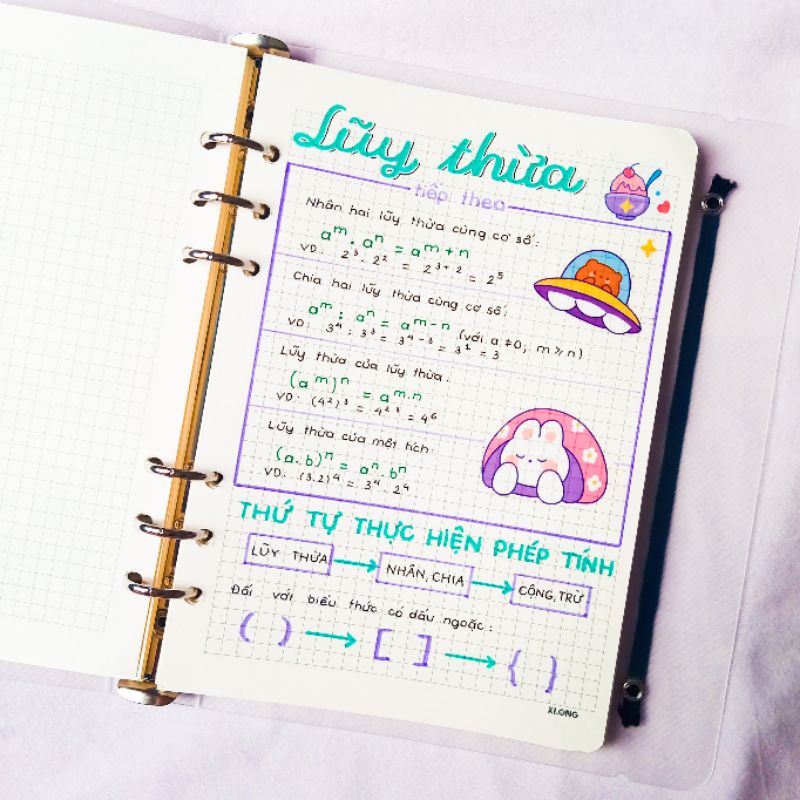 Lũy thừa
tiếp theo
Nhân hai lũy thừa cùng cơ số:
aᵐ . aⁿ = aᵐ⁺ⁿ
VD: 2³ . 2² = 2³⁺² = 2⁵
Chia hai lũy thừa cùng cơ số:
aᵐ : aⁿ = aᵐ⁻ⁿ (với a ≠ 0, m ≥ n)
VD: 3⁴ : 3³ = 3⁴⁻³ = 3¹ = 3
Lũy thừa của lũy thừa:
(aᵐ)ⁿ = aᵐ·ⁿ
VD: (4²)³ = 4²·³ = 4⁶
Lũy thừa của một tích:
(a.b)ⁿ = aⁿ . bⁿ
VD: (3.2)⁴ = 3⁴ . 2⁴
THỨ TỰ THỰC HIỆN PHÉP TÍNH
LŨY THỪA → NHÂN, CHIA → CỘNG, TRỪ
Đối với biểu thức có dấu ngoặc:
( ) → [ ] → { }
XI.ONG